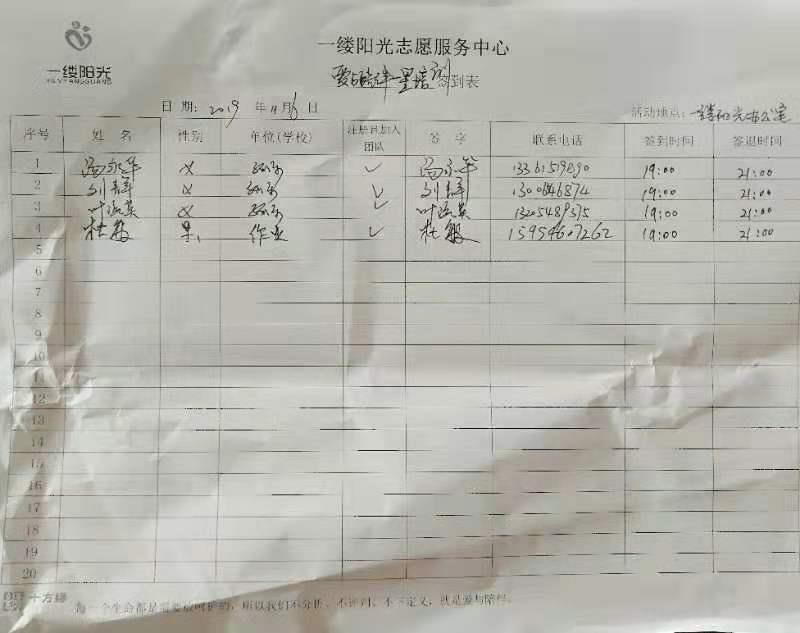 一缕阳光
YILYANGGUANG
一缕阳光志愿服务中心
签到表
日期: 2019 年 11 月 6 日 活动地点: 一缕阳光办公室
序号 姓名 性别 单位(学校) 注册且加入团队 签字 联系电话 签到时间 签退时间
1 冯永华 女 ✓ 冯永华 19:00 21:00
2 刘 女 ✓ 刘 19:00 21:00
3 叶 英 女 ✓ 叶 英 19:00 21:00
4 杜敏 男 作业 ✓ 杜敏 15954607262 19:00 21:00
5
6
7
8
9
10
11
12
13
14
15
16
17
18
19
20
十方缘 每一个生命都是需要被呵护的,所以我们不分析、不评判、不下定义,就是爱与陪伴。